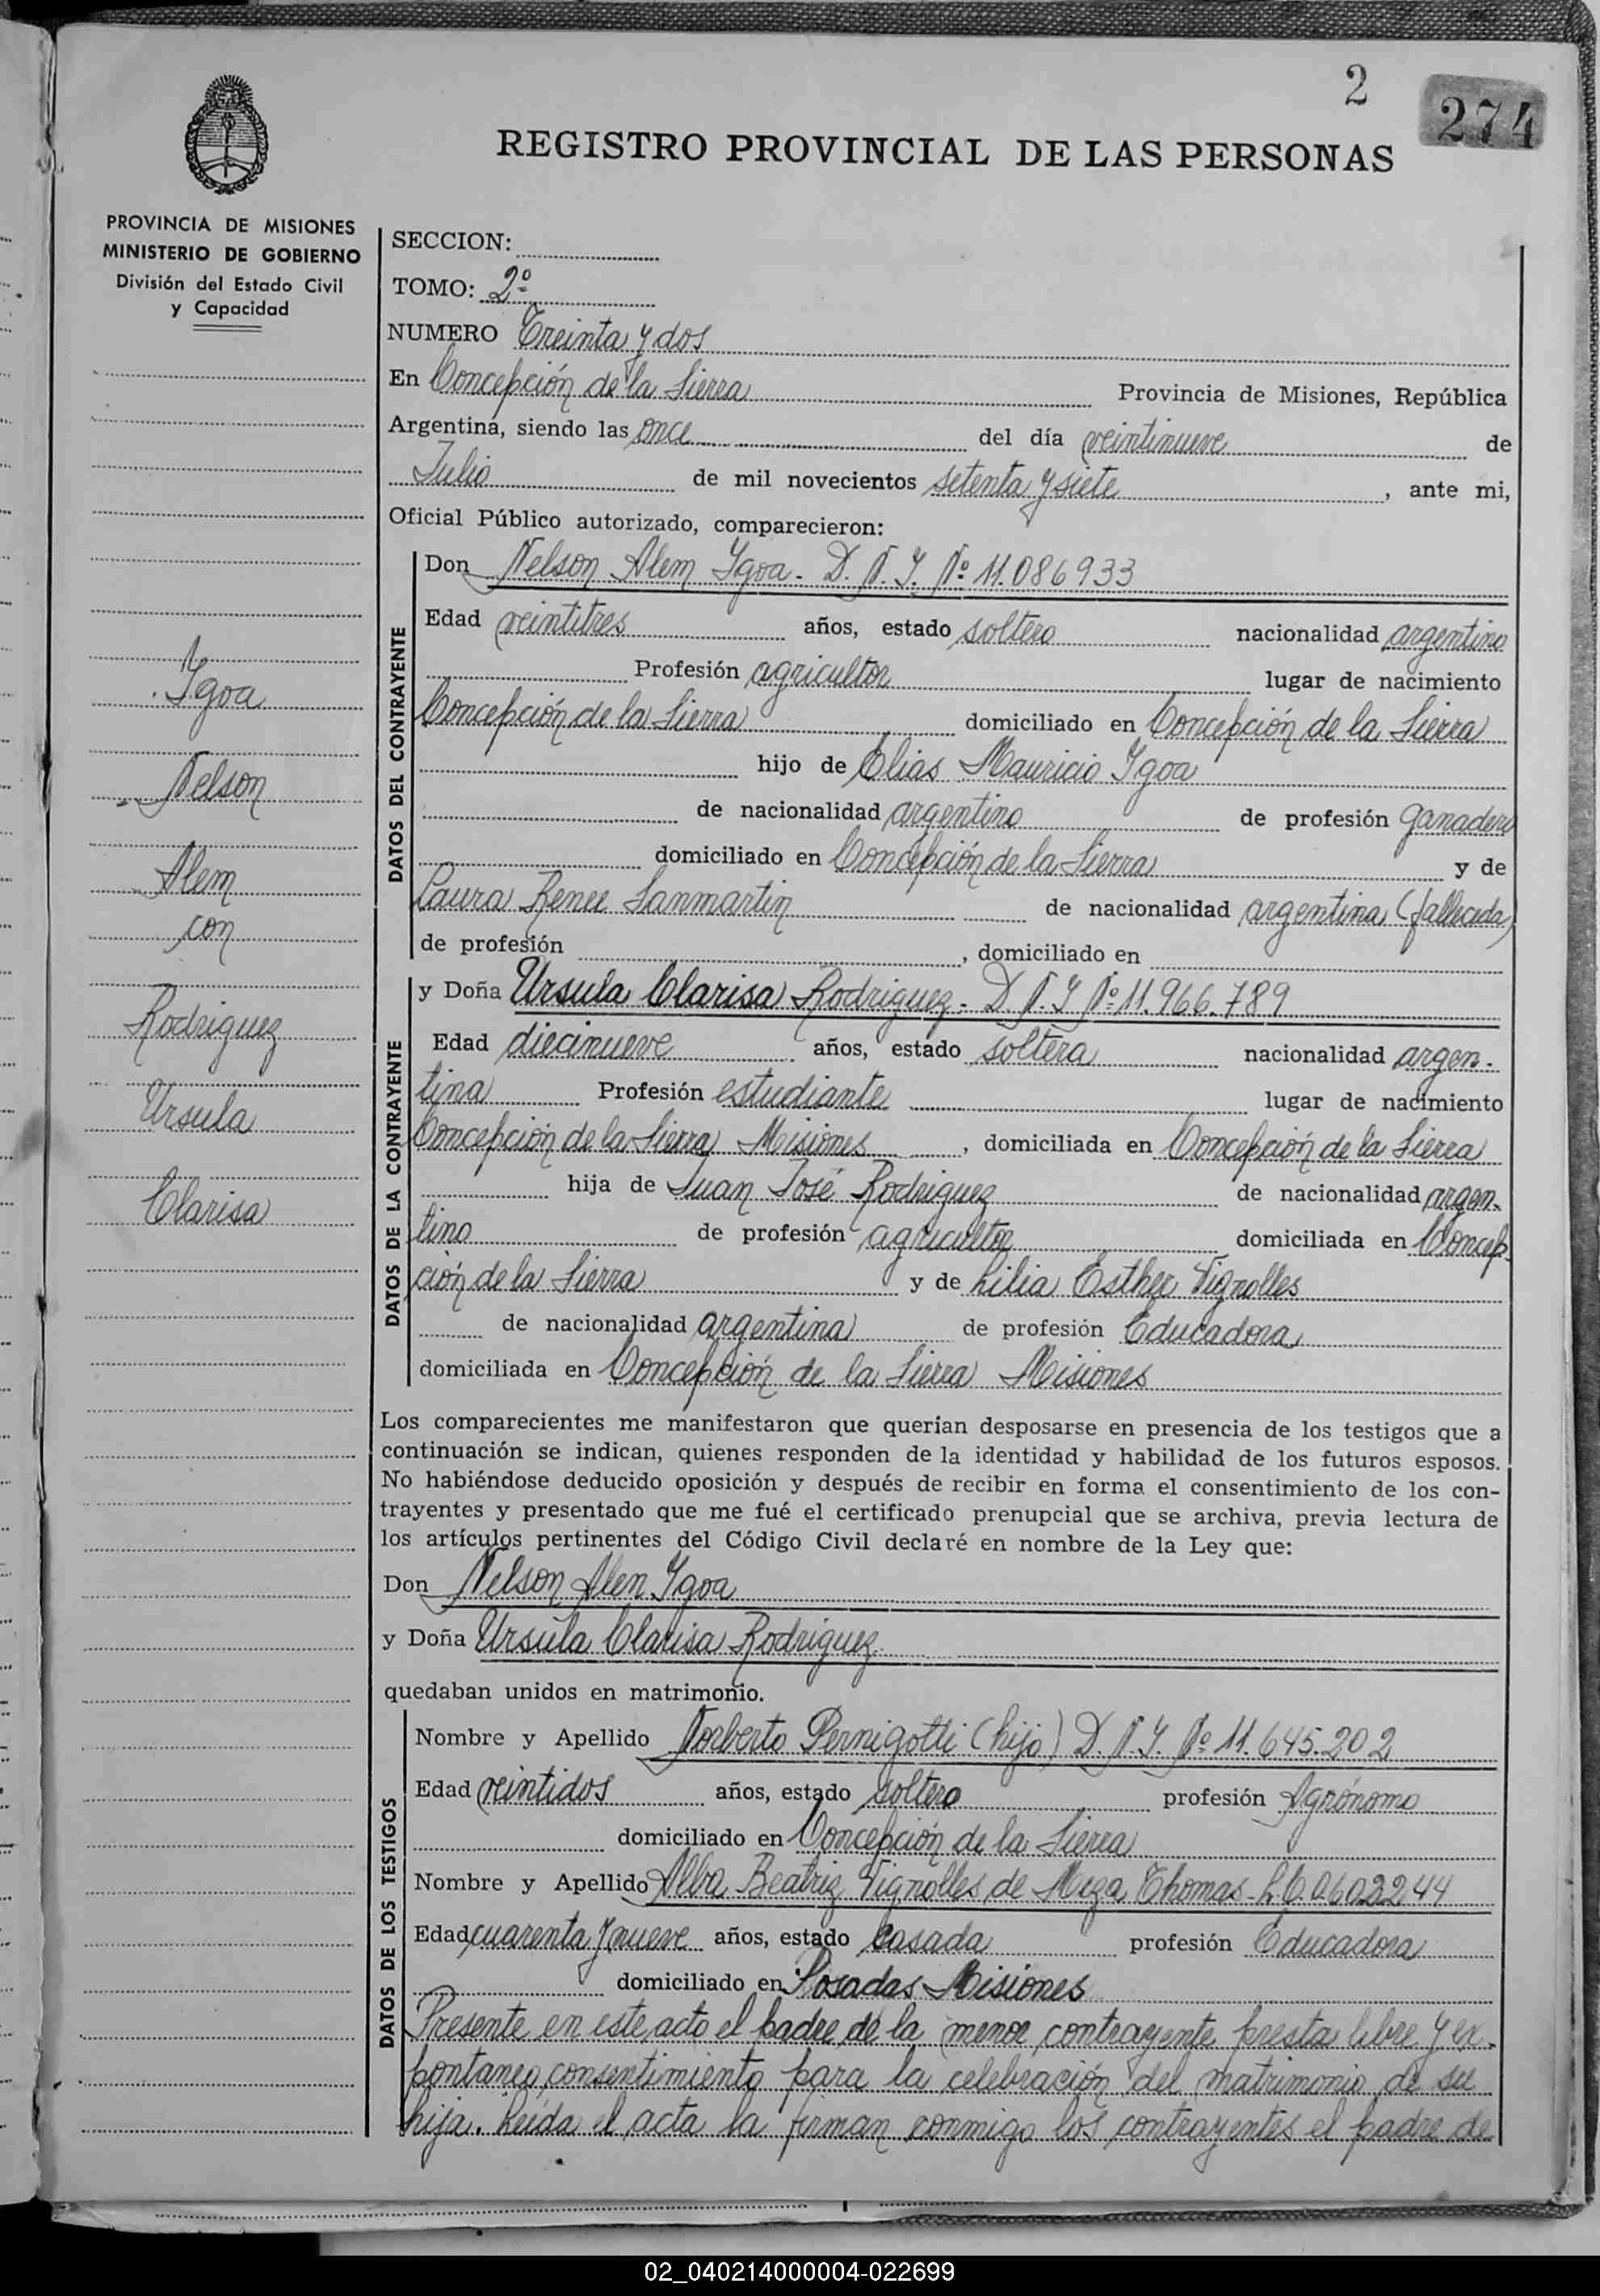 2
274
REGISTRO PROVINCIAL DE LAS PERSONAS
PROVINCIA DE MISIONES
MINISTERIO DE GOBIERNO
División del Estado Civil
y Capacidad
Igoa
Nelson
Alem
con
Rodriguez
Ursula
Clarisa
SECCION:
TOMO: 2º
NUMERO Treinta y dos
En Concepción de la Sierra Provincia de Misiones, República
Argentina, siendo las once del día veintinueve de
Julio de mil novecientos setenta y siete, ante mi,
Oficial Público autorizado, comparecieron:
DATOS DEL CONTRAYENTE
Don Nelson Alem Igoa - D. N. I. Nº 11.086933
Edad veintitres años, estado soltero nacionalidad argentino
Profesión agricultor lugar de nacimiento
Concepción de la Sierra domiciliado en Concepción de la Sierra
hijo de Elias Mauricio Igoa
de nacionalidad argentino de profesión ganadero
domiciliado en Concepción de la Sierra y de
Laura Renee Sanmartin de nacionalidad argentina (fallecida)
de profesión , domiciliado en
DATOS DE LA CONTRAYENTE
y Doña Ursula Clarisa Rodriguez - D. N. I Nº 11.966.789
Edad diecinueve años, estado soltera nacionalidad argen-
tina Profesión estudiante lugar de nacimiento
Concepción de la Sierra Misiones, domiciliada en Concepción de la Sierra
hija de Juan José Rodriguez de nacionalidad argen-
tino de profesión agricultor domiciliada en Concep-
ción de la Sierra y de Lilia Esther Vignolles
de nacionalidad argentina de profesión Educadora
domiciliada en Concepción de la Sierra Misiones
Los comparecientes me manifestaron que querían desposarse en presencia de los testigos que a
continuación se indican, quienes responden de la identidad y habilidad de los futuros esposos.
No habiéndose deducido oposición y después de recibir en forma el consentimiento de los con-
trayentes y presentado que me fué el certificado prenupcial que se archiva, previa lectura de
los artículos pertinentes del Código Civil declaré en nombre de la Ley que:
Don Nelson Alen Igoa
y Doña Ursula Clarisa Rodriguez
quedaban unidos en matrimonio.
DATOS DE LOS TESTIGOS
Nombre y Apellido Norberto Pernigotti (hijo) D. N. I. Nº 11.645.202
Edad veintidos años, estado soltero profesión Agrónomo
domiciliado en Concepción de la Sierra
Nombre y Apellido Alba Beatriz Vignolles de Meza Thomas - L.C. 0.603244
Edad cuarenta y nueve años, estado casada profesión Educadora
domiciliado en Posadas Misiones
Presente en este acto el padre de la menor contrayente presta libre y ex-
pontaneo consentimiento para la celebración del matrimonio de su
hija. Leida el acta la firman conmigo los contrayentes el padre de
02_040214000004-022699